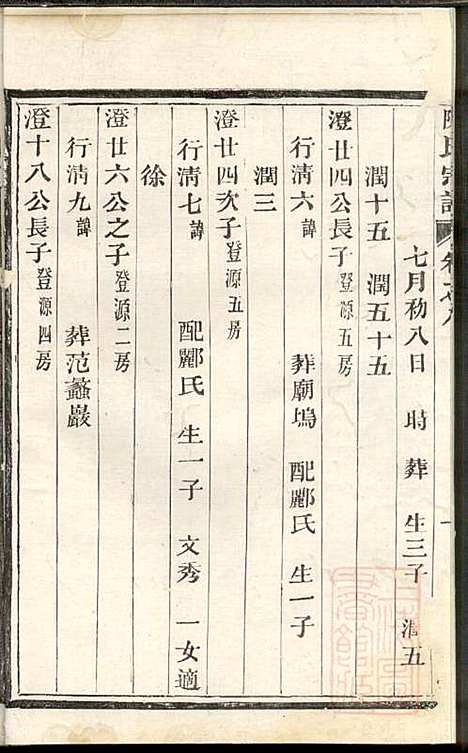 氏宗譜 卷之八
七月初八日 時 葬 生三子 潤五
潤十五 潤五十五
澄廿四公長子登源五房
行清六諱 葬廟塢 配酈氏 生一子
潤三
澄廿四次子登源五房
行清七諱 配酈氏 生一子 文秀 一女適
徐
澄廿六公之子登源二房
行清九諱 葬范蠡巖
澄十八公長子登源四房